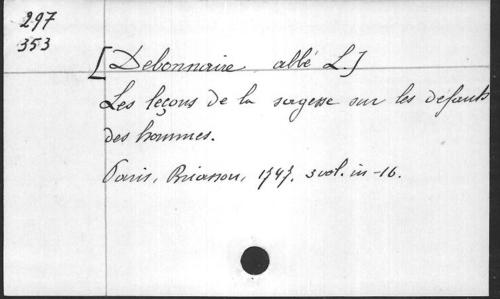 297
353
[Debonnaire abbé L.]
Les leçons de la sagesse sur les defauts
des hommes.
Paris, Briasson, 1747. 3 vol. in-16.